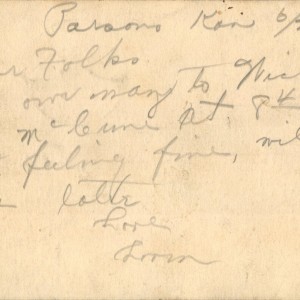 Parsons Kan 6/
r Folks.
our way to Wic
McCune at 8 4
feeling fine, wil
later
Love